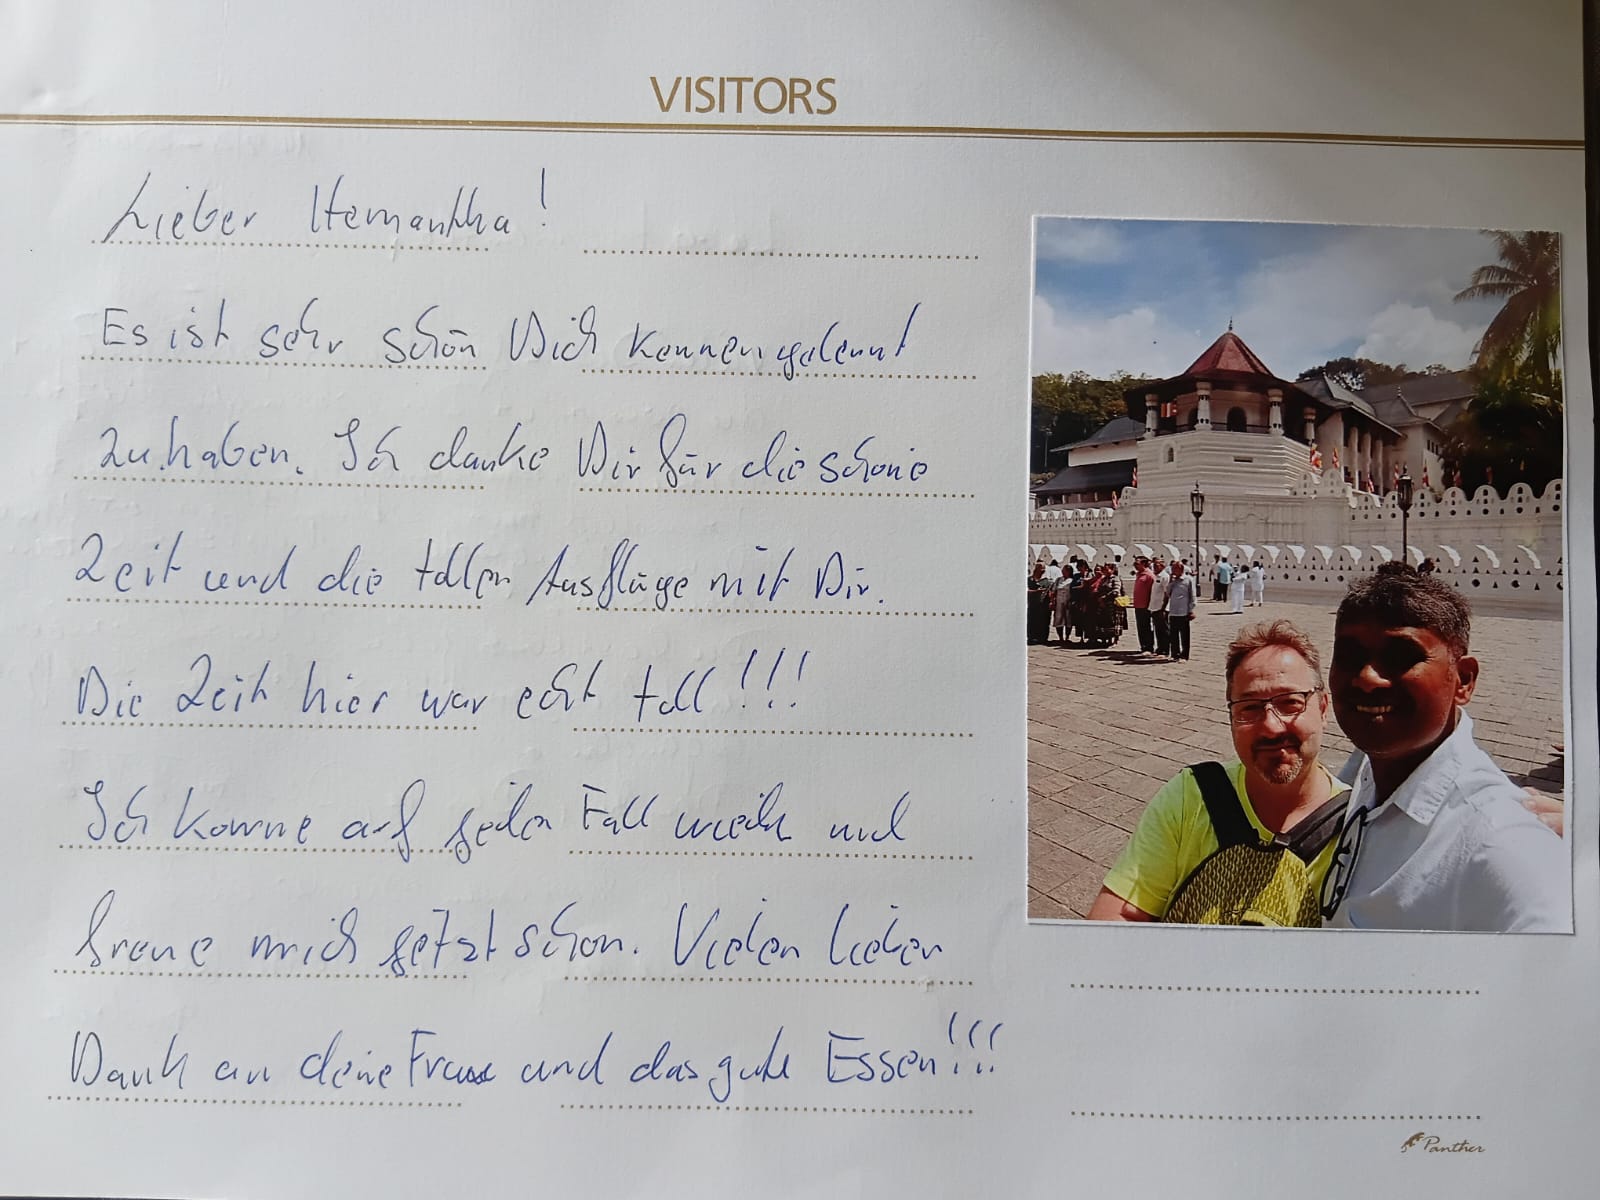 VISITORS
Lieber Hemantha!
Es ist sehr schön Dich kennengelernt
zu haben. Ich danke Dir für die schöne
Zeit und die tollen Ausflüge mit Dir.
Die Zeit hier war echt toll!!!
Ich komme auf jeden Fall wieder und
freue mich jetzt schon. Vielen lieben
Dank an deine Frau und das gute Essen!!!
Panther